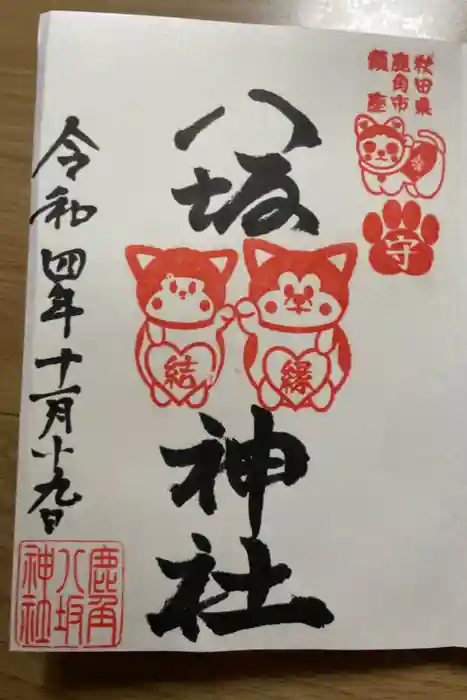 秋田県
鹿角市
花輪
守
八坂
縁
結
神社
令和四年十一月十九日
鹿角
八坂
神社